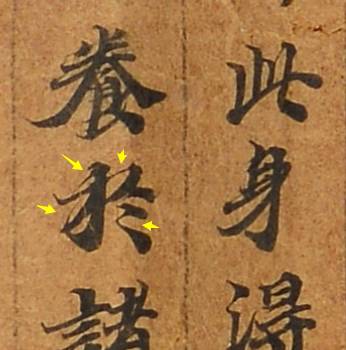 此身得
養於諸